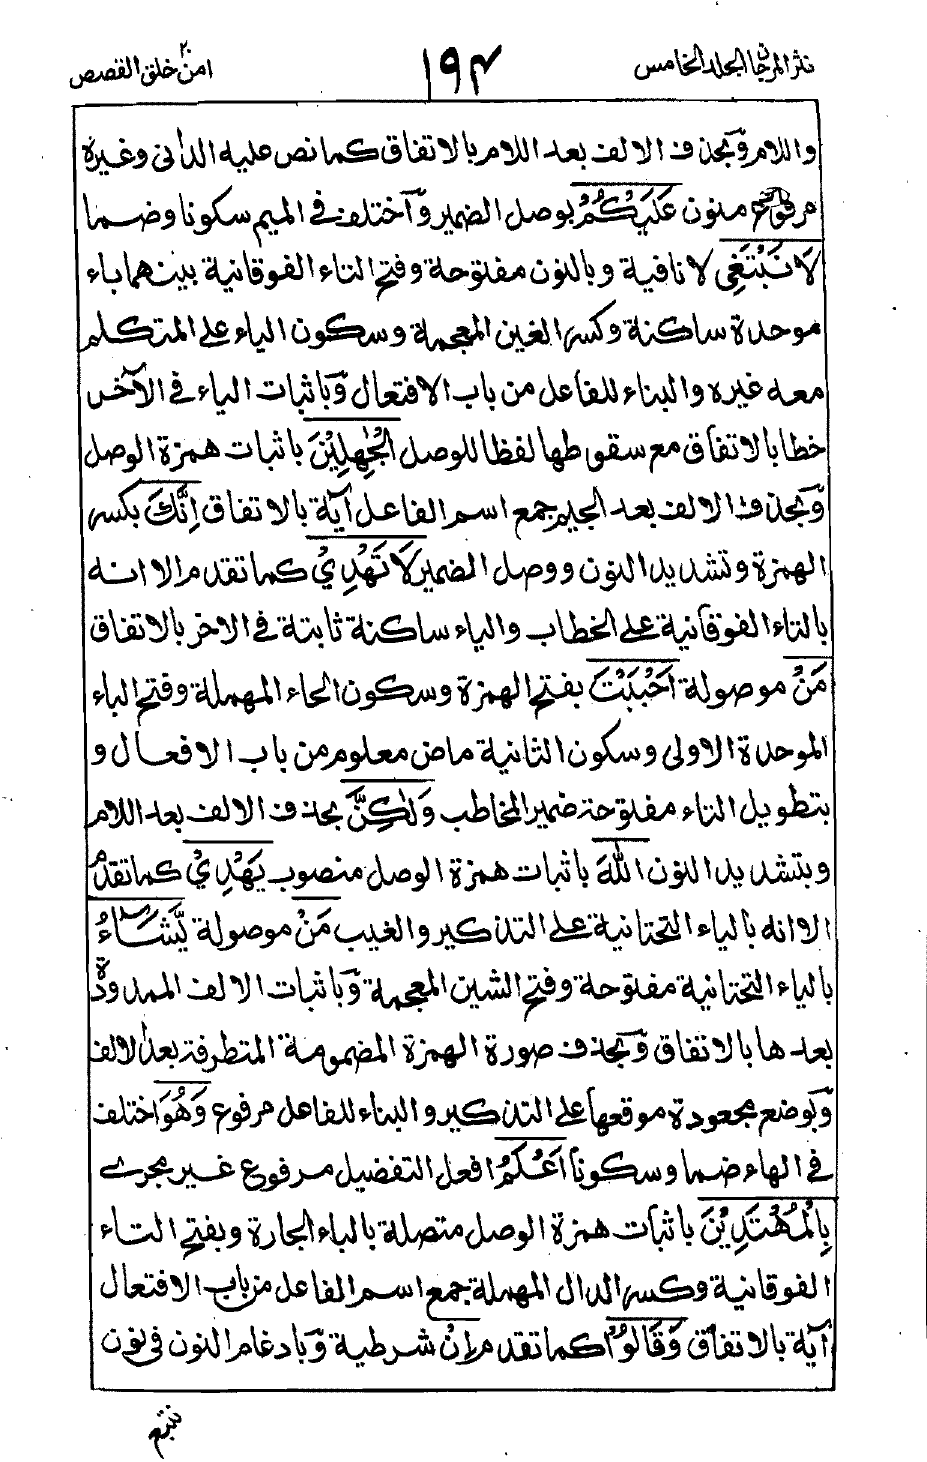 نثر المرجان المجلد الخامس ١٩٤ امن خلق ٢٠ القصص
واللام وَبحذف الالف بعد اللام بالاتفاق كما نص عليه الدانى وغيره
مرفوع منون عَلَيْكُمْ بوصل الضمير وَاختلف فى الميم سكونا وضما
لَا نَبْتَغِى لا نافية وبالنون مفتوحة وفتح التاء الفوقانية بينهما باء
موحدة ساكنة وكسر الغين المعجمة وسكون الياء على المتكلم
معه غيره والبناء للفاعل من باب الافتعال وَباثبات الياء فى الآخر
خطا بالاتفاق مع سقوطها لفظا للوصل الْجٰهِلِيْنَ باثبات همزة الوصل
وَبحذف الالف بعد الجيم جمع اسم الفاعل آية بالاتفاق اِنَّكَ بكسر
الهمزة وتشديد النون ووصل الضمير لَا تَهْدِيْ كما تقدم الا انه
بالتاء الفوقانية على الخطاب والياء ساكنة ثابتة فى الاخر بالاتفاق
مَنْ موصولة اَحْبَبْتَ بفتح الهمزة وسكون الحاء المهملة وفتح الباء
الموحدة الاولى وسكون الثانية ماض معلوم من باب الافعال و
بتطويل التاء مفتوحة ضمير المخاطب وَلٰكِنَّ بحذف الالف بعد اللام
وبتشديد النون اللّٰهَ باثبات همزة الوصل منصوب يَهْدِيْ كما تقدم
الا انه بالياء التحتانية على التذكير والغيب مَنْ موصولة يَّشَآءُ
بالياء التحتانية مفتوحة وفتح الشين المعجمة وَباثبات الالف الممدودة
بعدها بالاتفاق وَبحذف صورة الهمزة المضمومة المتطرفة بعد الالف
وَبوضع مجعودة موقعها على التذكير والبناء للفاعل مرفوع وَهُوَ اختلف
فى الهاء ضما وسكونا اَعْلَمُ افعل التفضيل مرفوع غير مجرے
بِالْمُهْتَدِيْنَ باثبات همزة الوصل متصلة بالباء الجارة وبفتح التاء
الفوقانية وكسر الدال المهملة جمع اسم الفاعل من باب الافتعال
آية بالاتفاق وَقَالُوْٓا كما تقدم اِنْ شرطية وَبادغام النون فى نون
نتبع